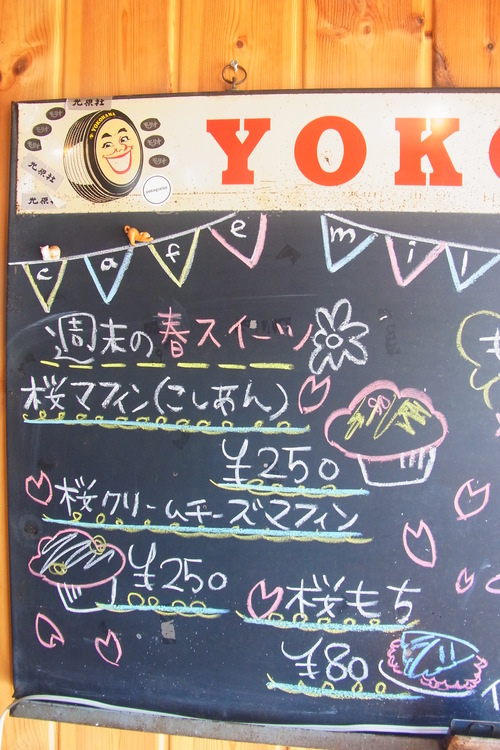 光原社
YOKOHAMA
光原社
光原社
YOKO
cafe mil
週末の春スイーツ
桜マフィン(こしあん)
¥250
桜クリームチーズマフィン
¥250
桜もち
¥80